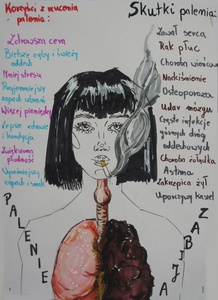 Korzyści z rzucenia
palenia:
Zdrowsza cera
Bielsze zęby i świeży
oddech
Mniej stresu
Przyjemniejszy
zapach ubrań
Więcej pieniędzy
Lepsze zdrowie
i kondycja
Zwiększona
płodność
węch i smak
Skutki palenia:
Zawał serca
Rak płuc
Choroba wieńcowa
Nadciśnienie
Osteoporoza
Udar mózgu
Częste infekcje
górnych dróg
oddechowych
Choroba żołądka
Astma
Zakrzepica żył
Uporczywy kaszel
PALENIE
ZABIJA